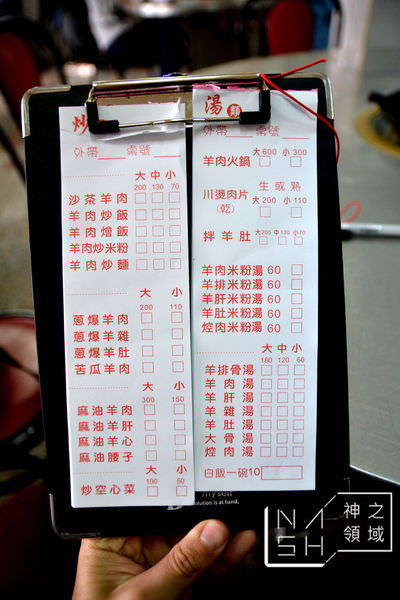 炒
外帶____ 桌號____
大 中 小
200 130 70
沙茶羊肉 □ □ □
羊肉炒飯 □ □ □
羊肉燴飯 □ □ □
羊肉炒米粉 □ □ □
羊肉炒麵 □ □ □
大 小
200 110
蔥爆羊肉 □ □
蔥爆羊雜 □ □
蔥爆羊肚 □ □
苦瓜羊肉 □ □
大 小
300 150
麻油羊肉 □ □
麻油羊肝 □ □
麻油羊心 □ □
麻油腰子 □ □
大 小
100 50
炒空心菜 □ □
湯 類
外帶____ 桌號____
羊肉火鍋 大600 小300
□ □
川燙肉片 生或熟
(乾) 大200 小110
□ □
拌羊肚 大200 中130 小70
□ □ □
羊肉米粉湯 60 □
羊排米粉湯 60 □
羊肝米粉湯 60 □
羊肚米粉湯 60 □
焢肉米粉湯 60 □
大 中 小
180 120 60
羊排骨湯 □ □ □
羊肉湯 □ □ □
羊肝湯 □ □ □
羊雜湯 □ □ □
羊肚湯 □ □ □
大骨湯 □ □ □
焢肉湯 □ □ □
白飯一碗10
solution is at hand.
NASH 神之領域